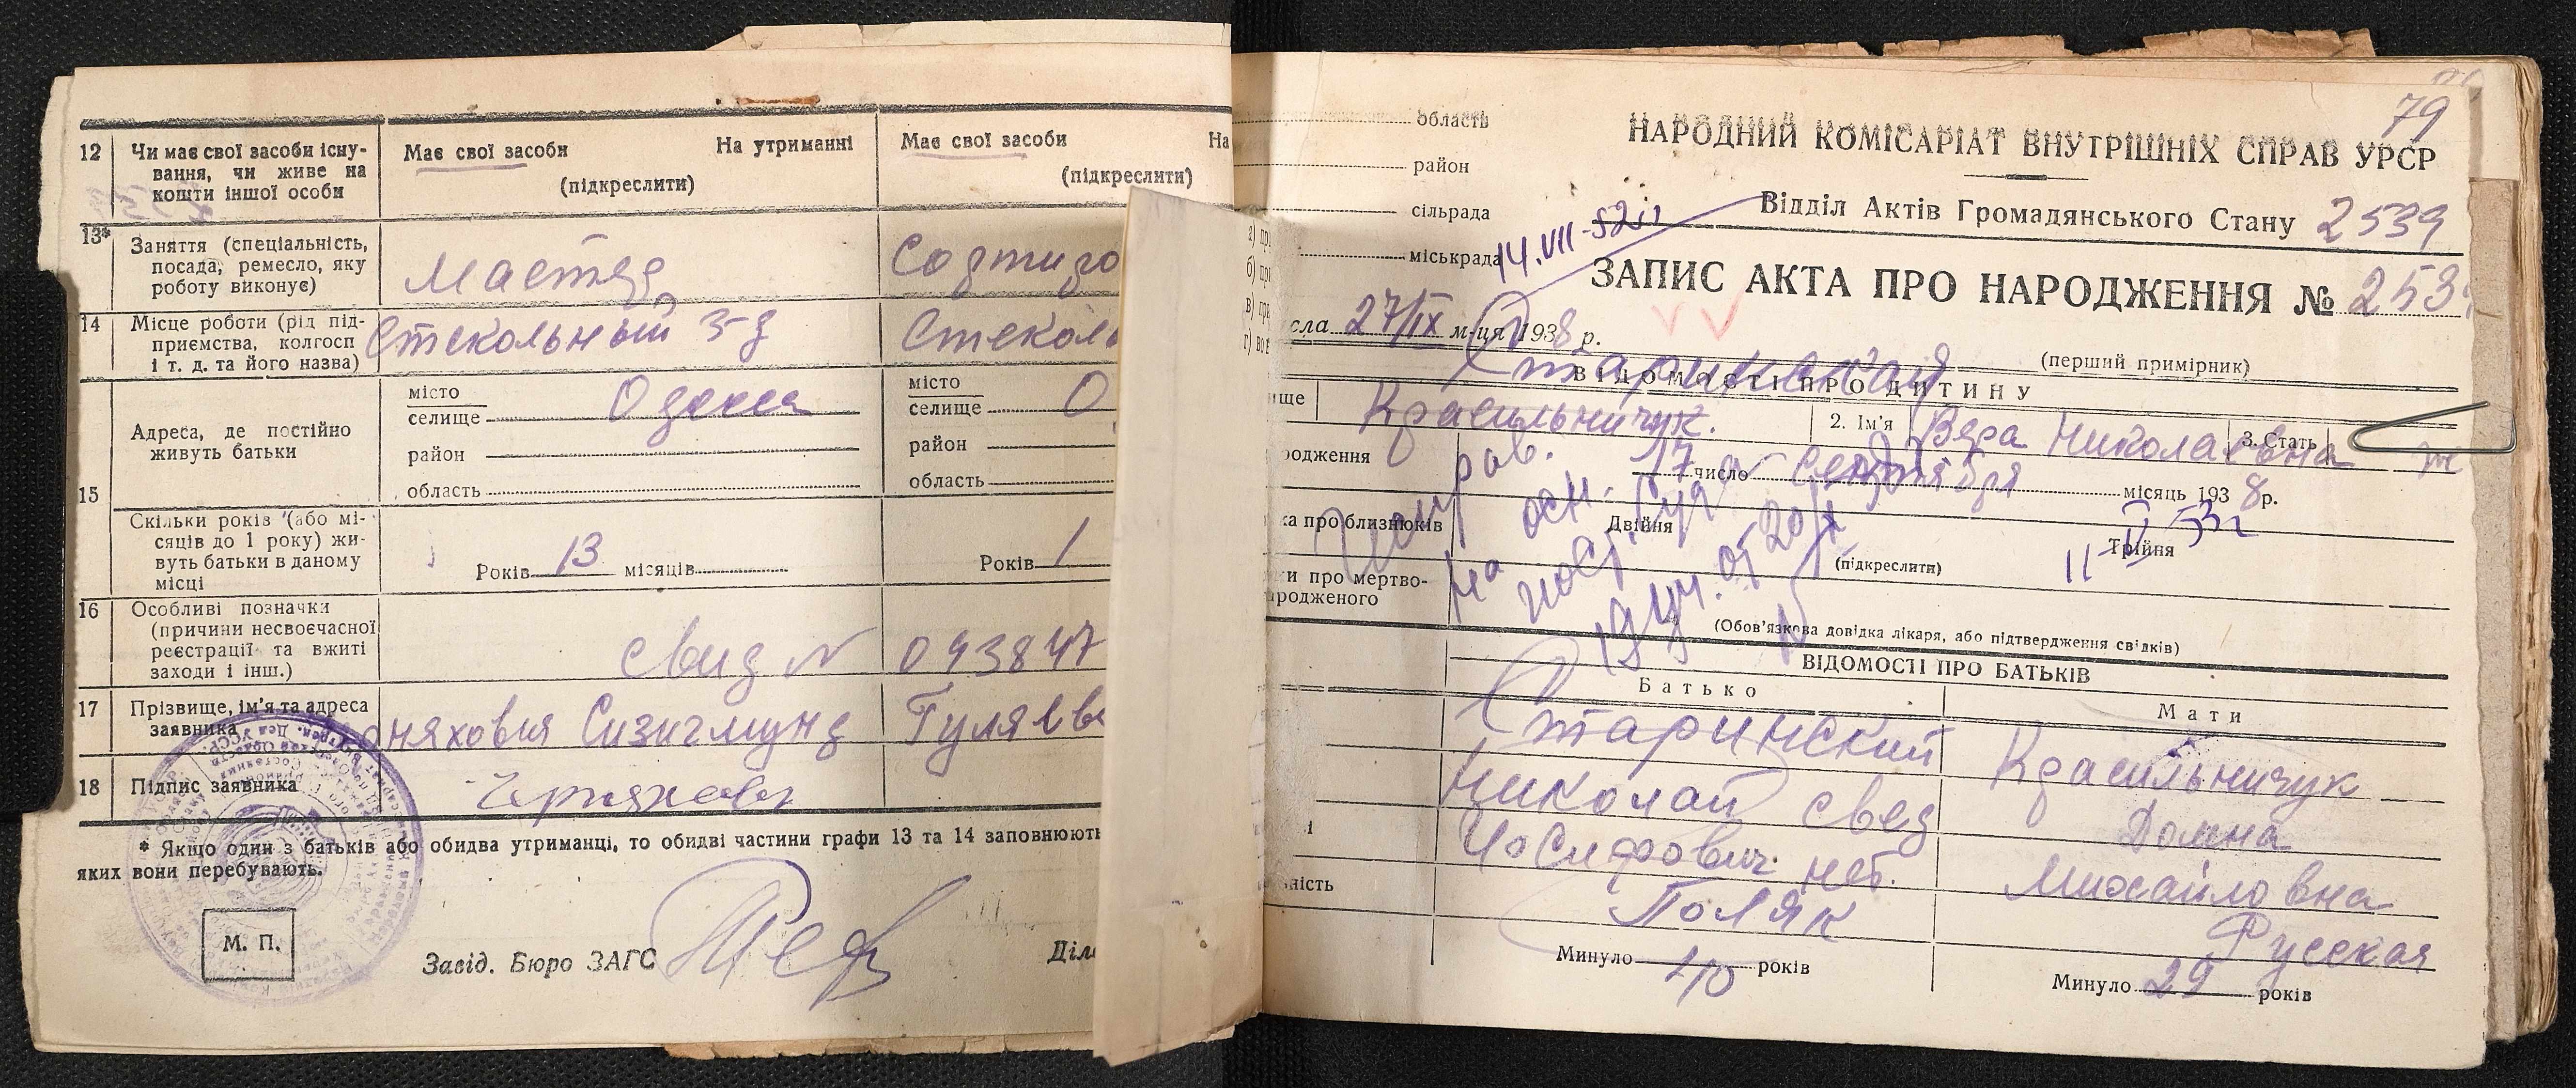 12 Чи має свої засоби існу-
вання, чи живе на
кошти іншої особи
Має свої засоби На утриманні
(підкреслити)
Має свої засоби На
(підкреслити)
13* Заняття (спеціальність,
посада, ремесло, яку
роботу виконує)
Мастер
Сортиро
14 Місце роботи (рід під-
приємства, колгосп
і т. д. та його назва)
Стекольный з-д
Стеколь
15 Адреса, де постійно
живуть батьки
місто
селище Одесса
район
область
місто
селище О
район
область
Скільки років (або мі-
сяців до 1 року) жи-
вуть батьки в даному
місці
Років 13 місяців
Років 1
16 Особливі позначки
(причини несвоєчасної
реєстрації та вжиті
заходи і інш.)
Свид № 043847
17 Прізвище, ім'я та адреса
заявника
няховия Сизигмунд Гуляев
18 Підпис заявника
* Якщо один з батьків або обидва утриманці, то обидві частини графи 13 та 14 заповнюють
яких вони перебувають.
М. П.
Завід. Бюро ЗАГС
Діл
79
область
район
сільрада
міськрада
НАРОДНИЙ КОМІСАРІАТ ВНУТРІШНІХ СПРАВ УРСР
Відділ Актів Громадянського Стану 2539
14.VII-52г
ЗАПИС АКТА ПРО НАРОДЖЕННЯ № 253
сла 27/IX м-ця 1938 р.
(перший примірник)
Старинская
ВІДОМОСТІ ПРО ДИТИНУ
ище Красильничук. 2. Ім'я Вера Николаевна 3. Стать ж
родження 17 число Сентября місяць 1938 р.
Исправ.
на осн.
пост.
уч. от 20/X
11-IV 53г
ка про близнюків Двійня Трійня
(підкреслити)
ки про мертво-
народженого
(Обов'язкова довідка лікаря, або підтвердження свідків)
ВІДОМОСТІ ПРО БАТЬКІВ
Батько Мати
Старинский Красильничук
Николай Домна
свед
Иосифович Михайловна
нет.
ність Поляк Русская
Минуло 40 років Минуло 29 років